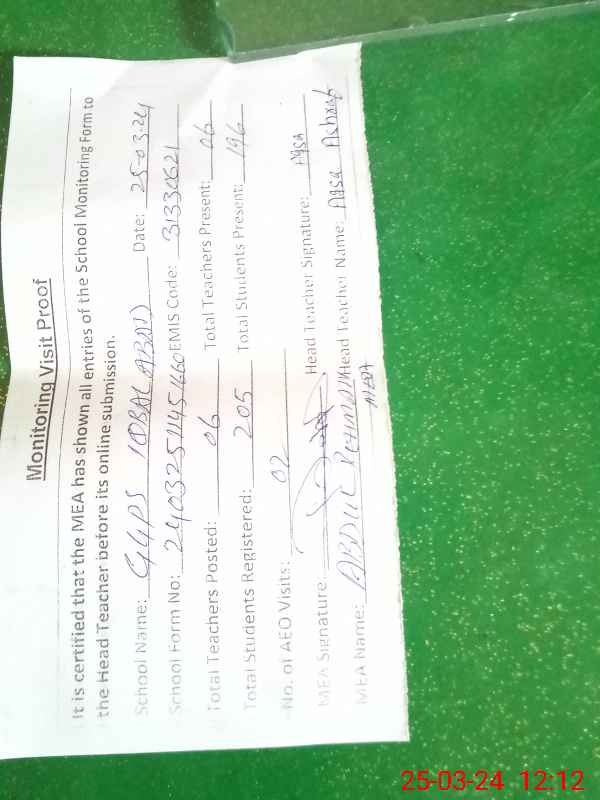 Monitoring Visit Proof
It is certified that the MEA has shown all entries of the School Monitoring Form to
the Head Teacher before its online submission.
School Name: GGPS IQBAL ABAD Date: 25-03-24
School Form No: EMIS Code: 31330621
Total Teachers Posted: 06 Total Teachers Present: 06
Total Students Registered: 205 Total Students Present: 196
No. of AEO Visits: 02
MEA Signature Head Teacher Signature: Aqsa
MEA Name: ABDUL REHMAN Head Teacher Name: Aqsa Ashraf
25-03-24 12:12